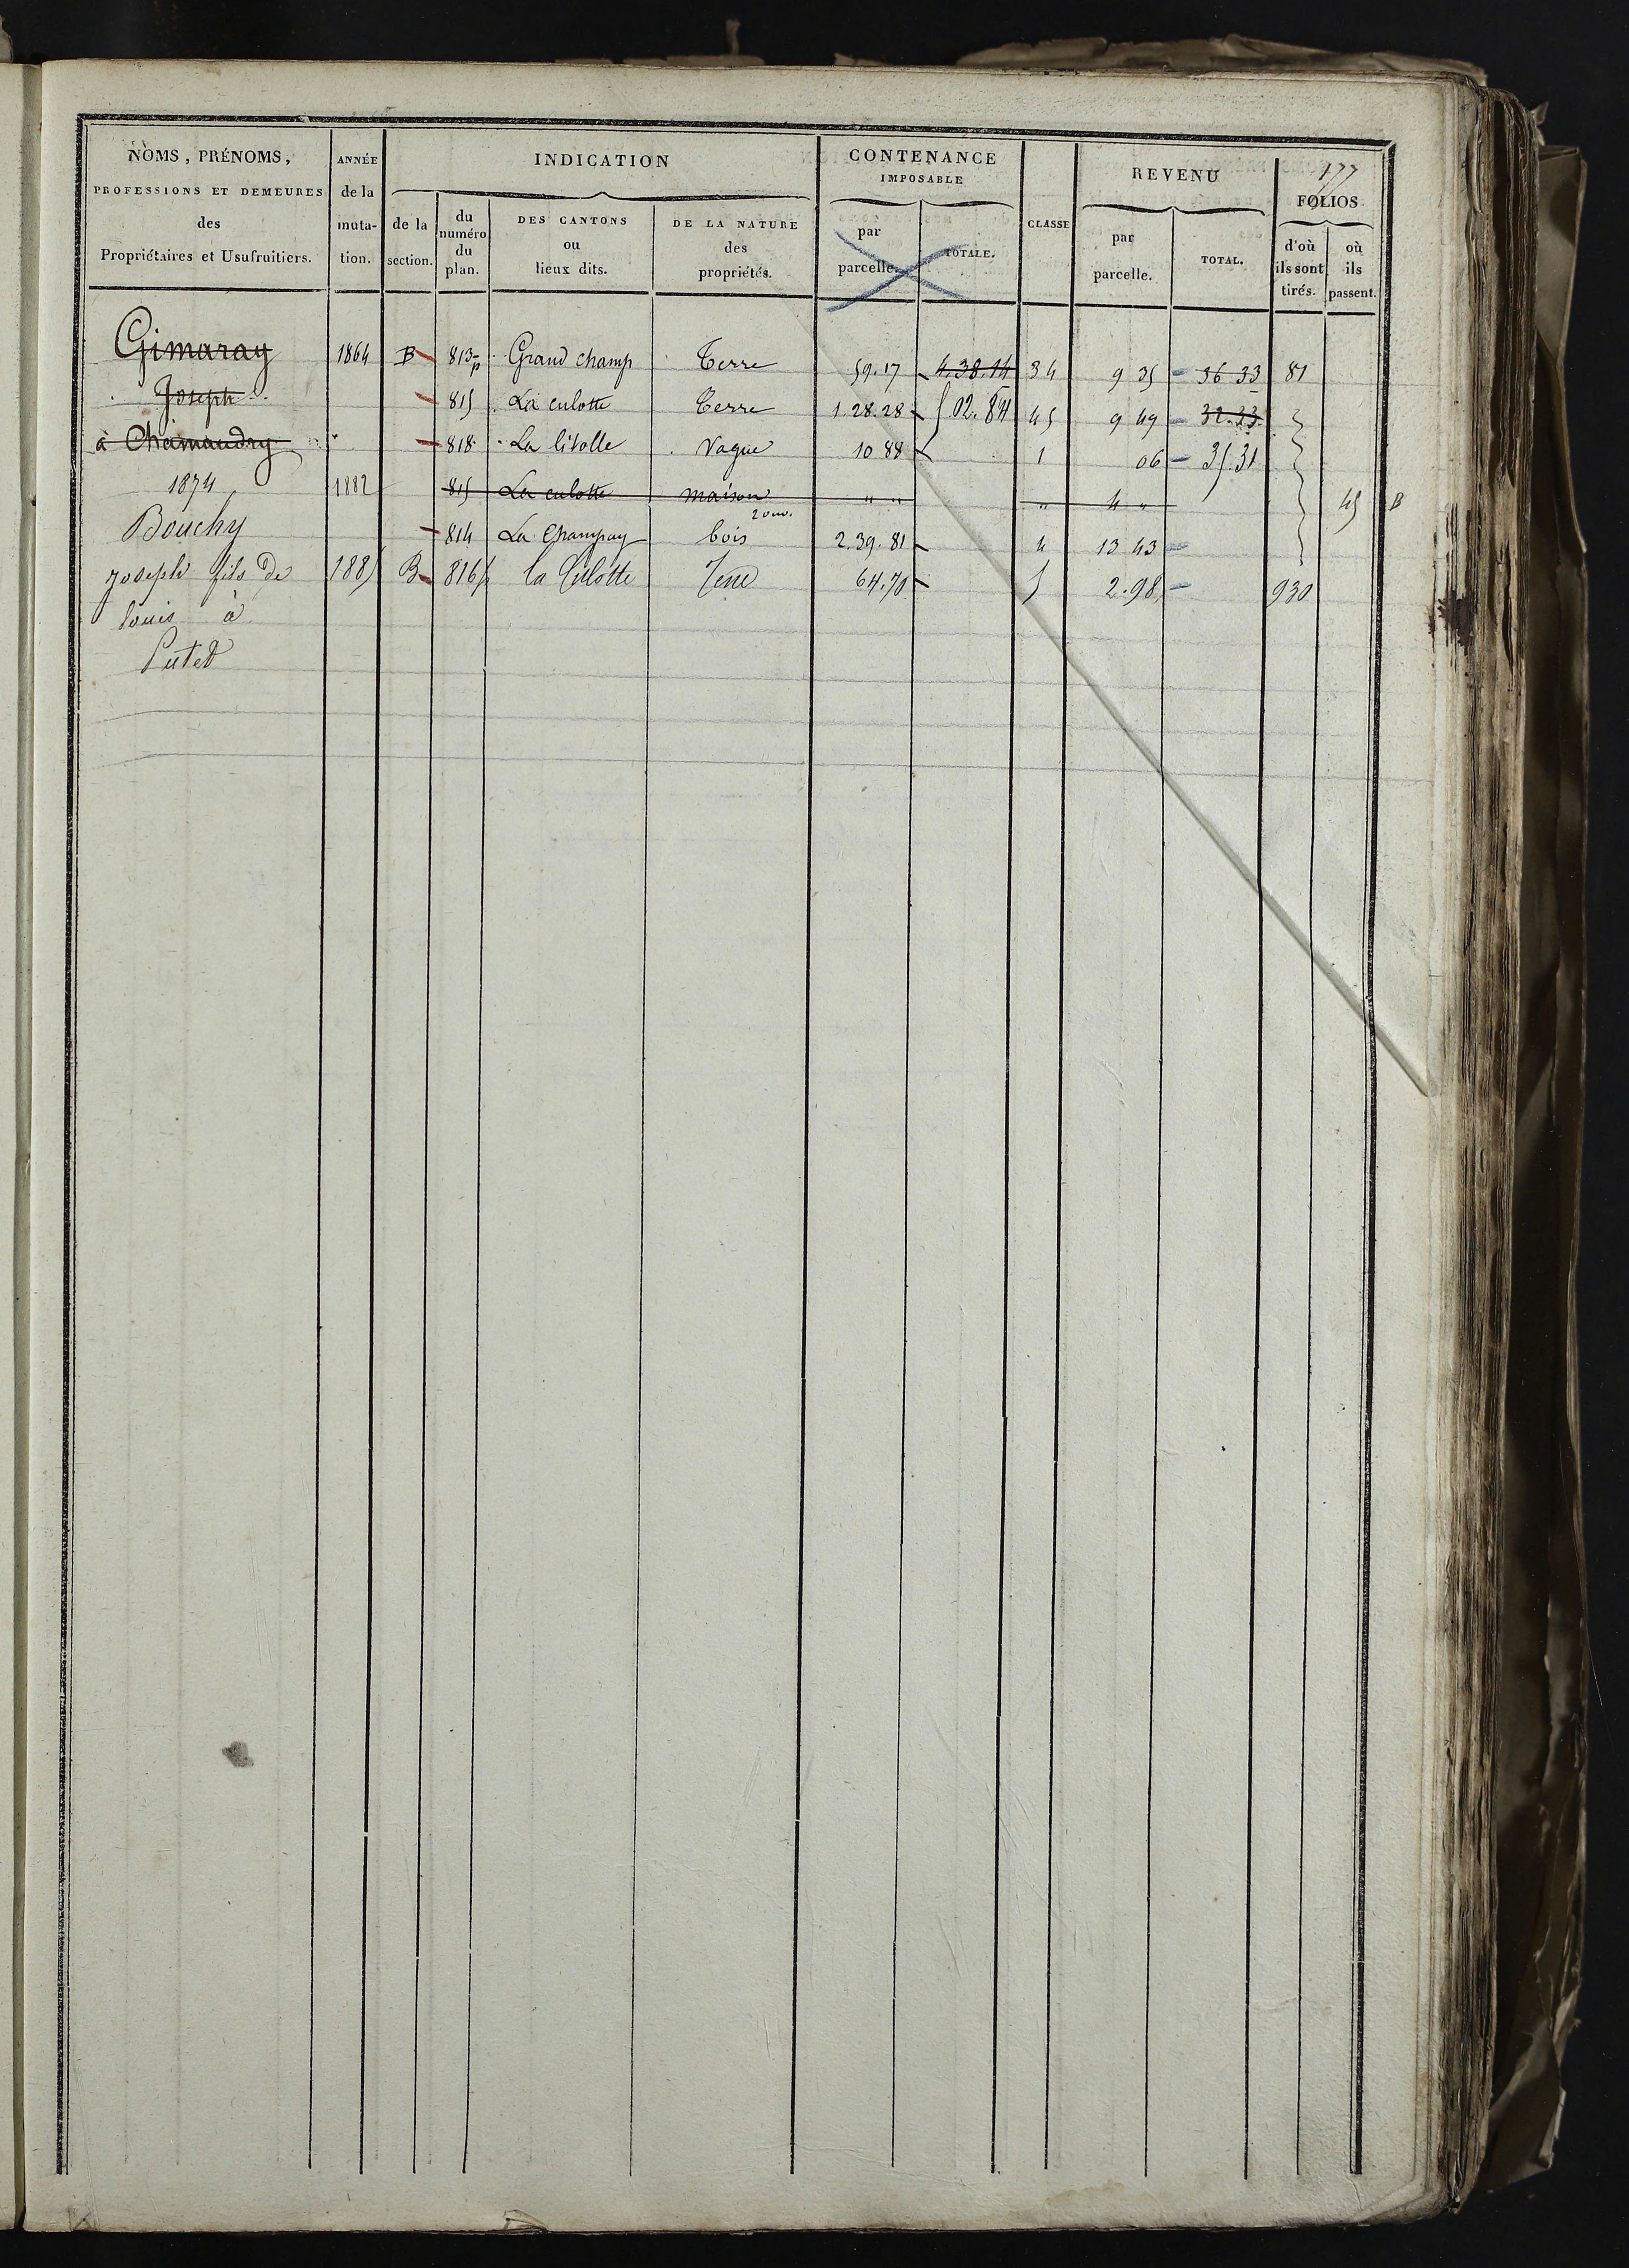 177
NOMS, PRÉNOMS, PROFESSIONS ET DEMEURES des Propriétaires et Usufruitiers.
ANNÉE de la muta- tion.
INDICATION
de la section.
du numéro du plan.
DES CANTONS ou lieux dits.
DE LA NATURE des propriétés.
CONTENANCE IMPOSABLE
par parcelle.
TOTALE.
CLASSE
REVENU
par parcelle.
TOTAL.
FOLIOS
d'où ils sont tirés.
où ils passent.
Gimaray 1864 B 813p Grand champ Terre 59.17 4.38.14 34 9 35 36 33 81
Joseph 815 La culotte Terre 1.28.28 5.02.84 45 9 49 32.33
à Chamandry 818 La litolle Vague 10 88 1 06 35.31
1874 1882 815 La culotte maison " " " 4 " 45 B
2 ouv.
Bouchy 814 La Champay bois 2.39.81 4 13 43
joseph fils de 1885 B 816p la Culotte Terre 64.70 5 2.98 930
louis à
Putet